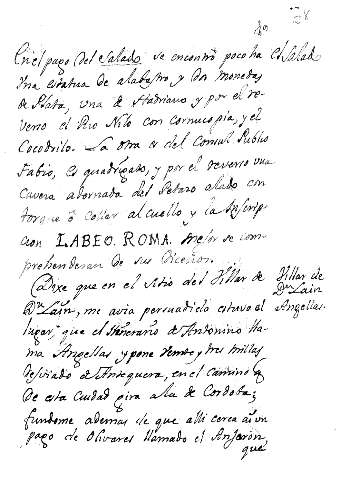 En el pago del Salado se encontró poco ha
El Salado
Una estatua de alabastro y dos monedas
de Plata, una de Hadriano y por el re-
verso el Rio Nilo con cornucopia, y el
Cocodrilo. La otra es del Consul Publio
Fabio, es quadrigado, y por el reverso una
cavera adornada del Petaso alado con
torque ò collar al cuello y la Inscrip-
cion LABEO. ROMA. mejor se com-
prehenderan de sus Diceños.
Dixe que en el sitio del Villar de
Villar de
Dn. Lain
Angellas.
Dn. Lain, me avia persuadido estuvo el
lugar, que el Itinerario de Antonino lla-
ma Angellas y pone veinte y tres millas
desviado de Antequera, en el camino q
de esta ciudad gira a la de Cordoba;
fundome ademas de que alli cerca ai un
pago de Olivares llamado el Anjerón,
que